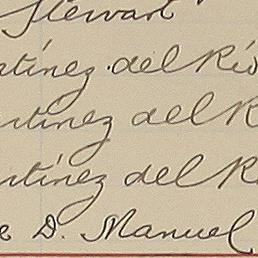 Stewart
rtínez del Río
rtínez del R
rtínez del R
e D. Manuel